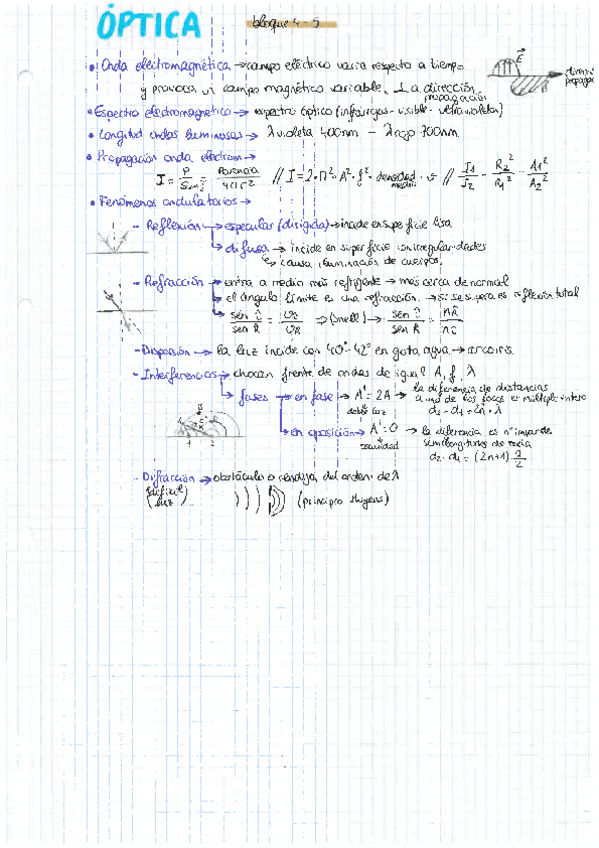 ÓPTICA bloque 4-5
• Onda electromagnética → campo eléctrico varia respecto a tiempo
y provoca un campo magnético variable. ⊥ a dirección propagación
E
B
• Espectro electromagnético → espectro óptico (infrarrojos - visible - ultravioletas)
• Longitud ondas luminosas → λ violeta 400nm - λ rojo 700nm
• Propagación onda electrom →
I = P/Sup = Potencia/4πr² // I = 2·π²·A²·f²·densidad medio·v // I1/I2 = R2²/R1² = A1²/A2²
• Fenómenos ondulatorios →
- Reflexión → especular (dirigida) → incide en superficie lisa
→ difusa → incide en superficie con irregularidades
↳ causa iluminación de cuerpos
- Refracción → entra a medio más refrigente → más cerca de normal
→ el ángulo límite es una refracción. → si se supera es reflexión total
→ sen î/sen R̂ = vi/vR ⇒ (Snell) → sen î/sen R = nR/ni
- Dispersión → la luz incide con 40°-42° en gota agua → arcoiris.
- Interferencias → chocan frente de ondas de igual A, f, λ
→ fases → en fase → A' = 2A → la diferencia de distancias
a uno de los focos es múltiplo entero
d2 - d1 = 2n·λ
→ en oposición → A' = 0 → la diferencia es nº impar de
oscuridad
semilongitudes de onda
d2 - d1 = (2n+1) λ/2
1 2
- Difracción → obstáculo o rendija del orden de λ
(principio Huygens)